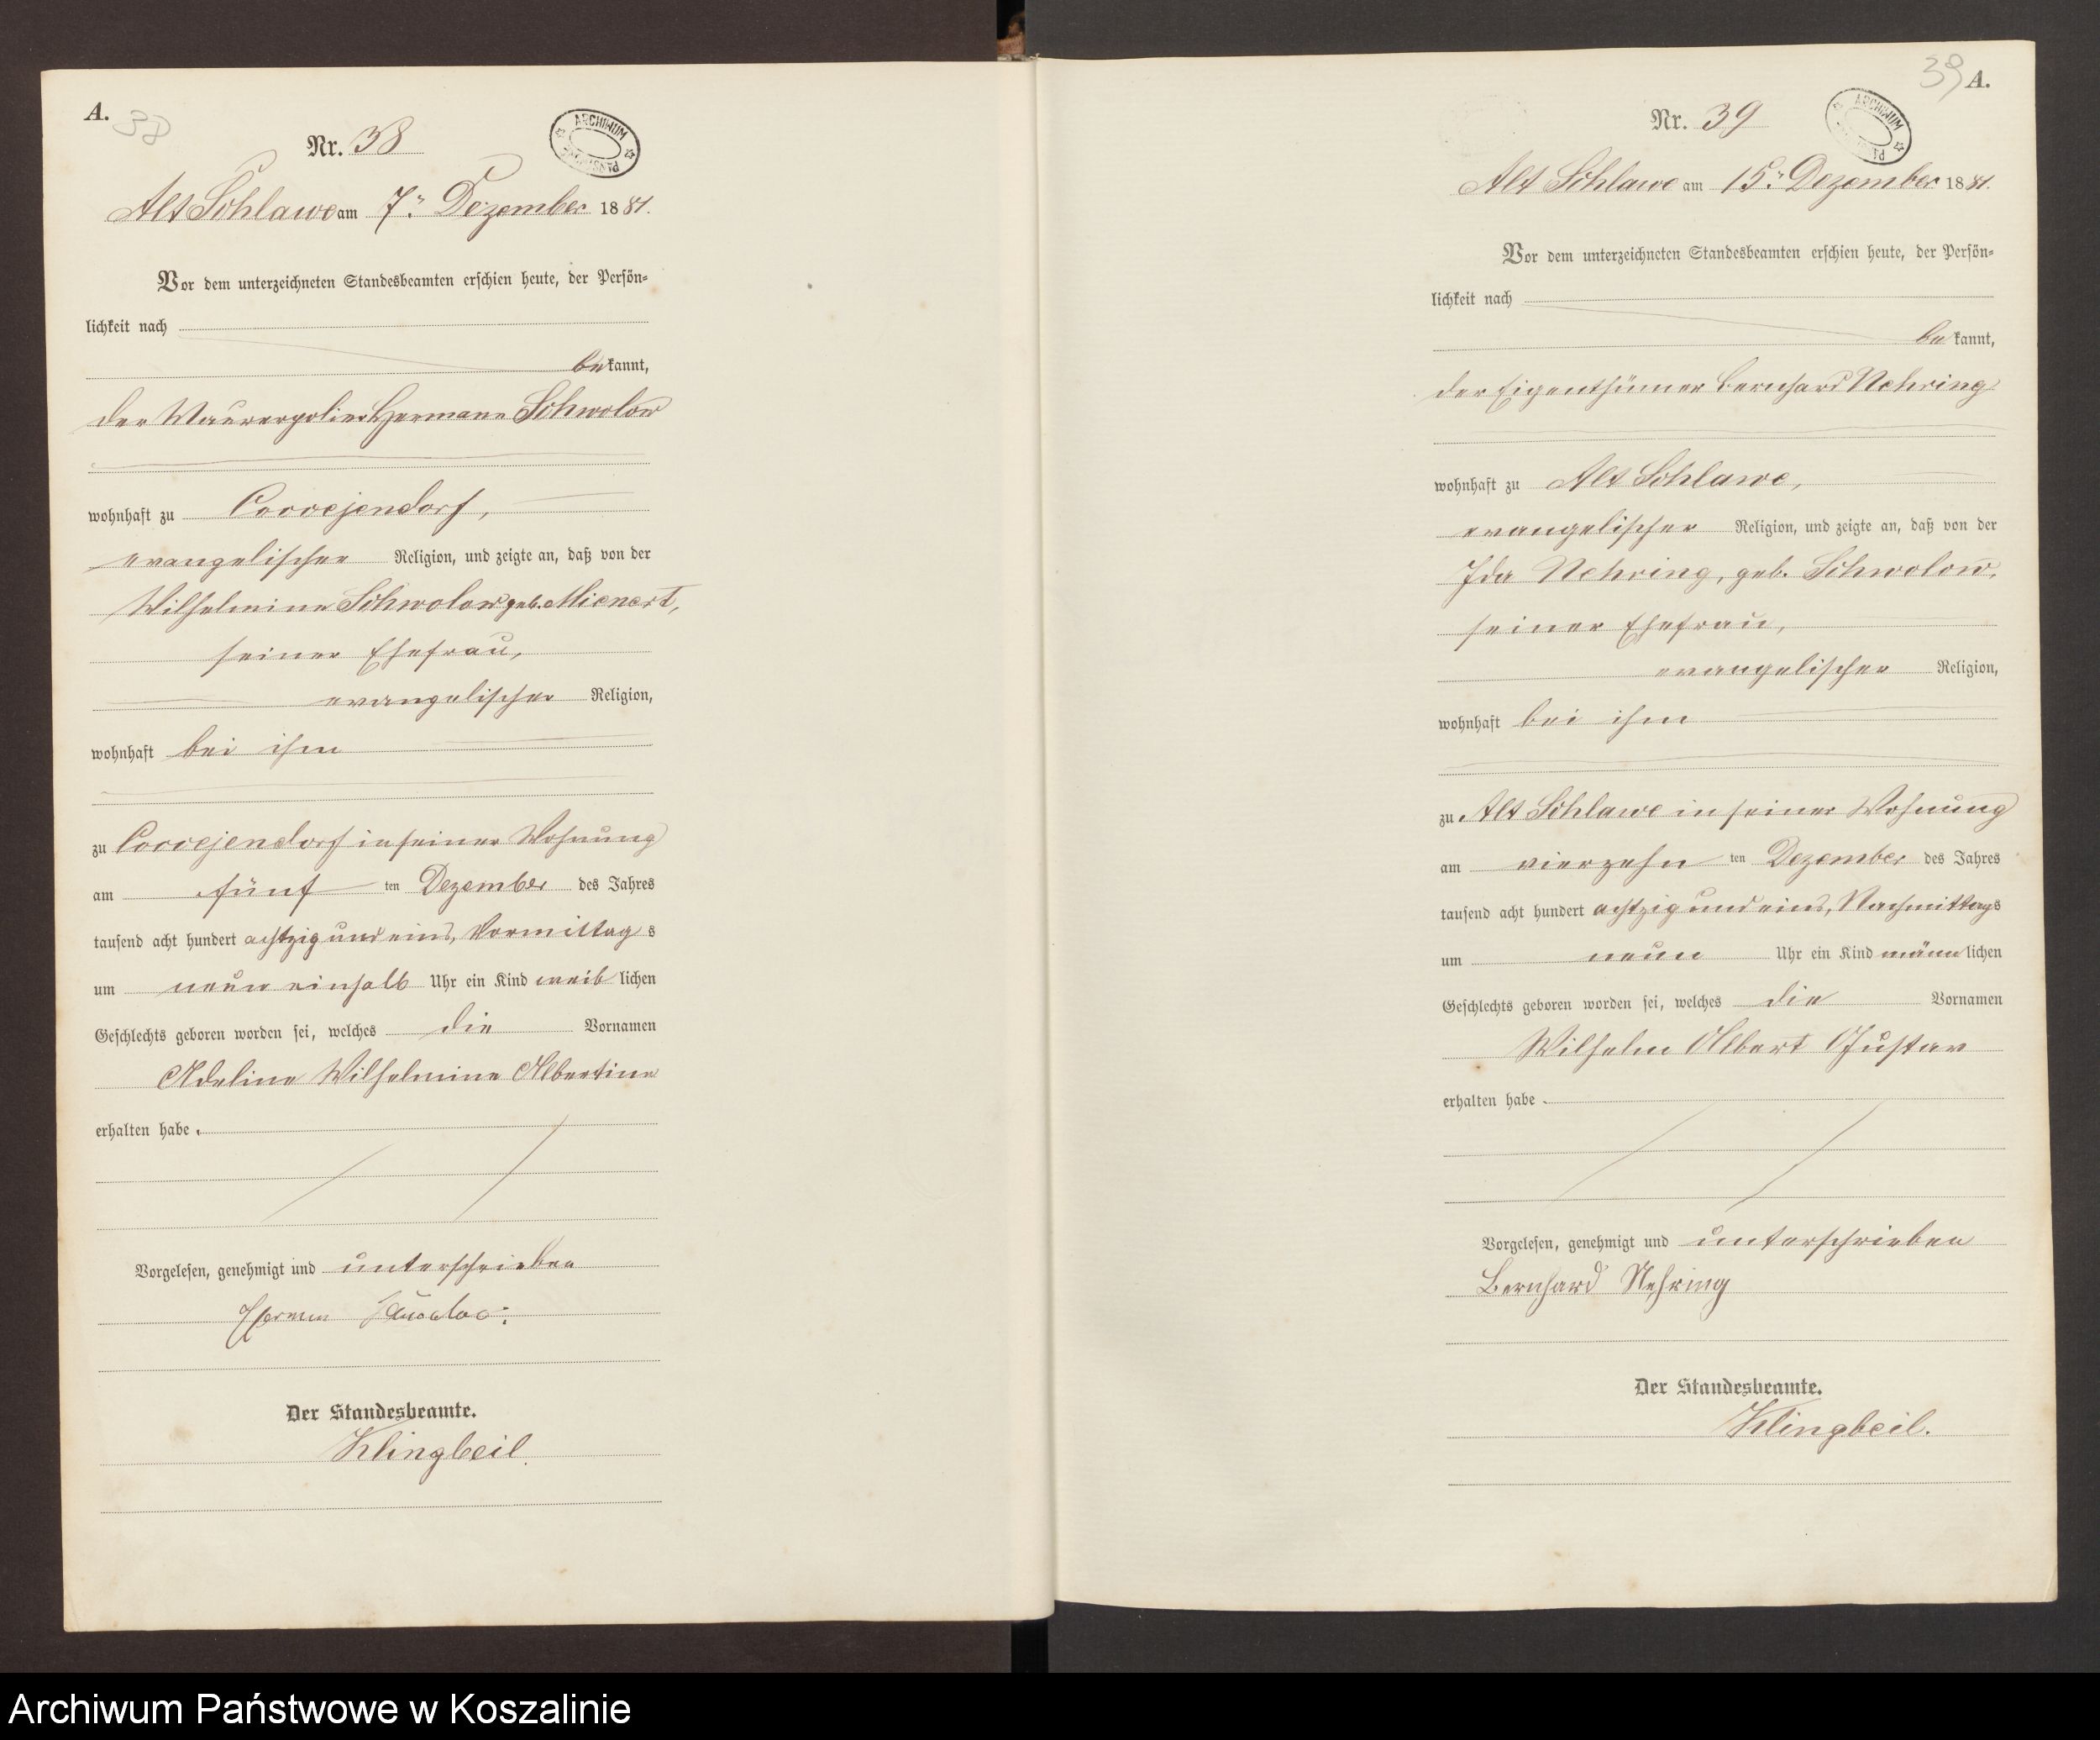 A.
38
Nr. 38
ARCHIWUM
Alt Schlawe am 7ten Dezember 1881.
Vor dem unterzeichneten Standesbeamten erschien heute, der Persön-
lichkeit nach
bekannt,
der Maurerpolier Hermann Schwolow
wohnhaft zu Coccejendorf,
evangelischer Religion, und zeigte an, daß von der
Wilhelmine Schwolow geb. Mienert,
seiner Ehefrau,
evangelischer Religion,
wohnhaft bei ihm
zu Coccejendorf in seiner Wohnung
am fünf ten Dezember des Jahres
tausend acht hundert achtzig und eins, Vormittags
um neun einhalb Uhr ein Kind weiblichen
Geschlechts geboren worden sei, welches die Vornamen
Adeline Wilhelmine Albertine
erhalten habe.
Vorgelesen, genehmigt und unterschrieben
Der Standesbeamte.
Klingbeil.
39 A.
Nr. 39
ARCHIWUM
Alt Schlawe am 15ten Dezember 1881.
Vor dem unterzeichneten Standesbeamten erschien heute, der Persön-
lichkeit nach
bekannt,
der Eigenthümer Bernhard Nehring
wohnhaft zu Alt Schlawe,
evangelischer Religion, und zeigte an, daß von der
Ida Nehring, geb. Schwolow,
seiner Ehefrau,
evangelischer Religion,
wohnhaft bei ihm
zu Alt Schlawe in seiner Wohnung
am vierzehn ten Dezember des Jahres
tausend acht hundert achtzig und eins, Nachmittags
um neun Uhr ein Kind männlichen
Geschlechts geboren worden sei, welches die Vornamen
Wilhelm Albert Gustav
erhalten habe.
Vorgelesen, genehmigt und unterschrieben
Bernhard Nehring
Der Standesbeamte.
Klingbeil.
Archiwum Państwowe w Koszalinie